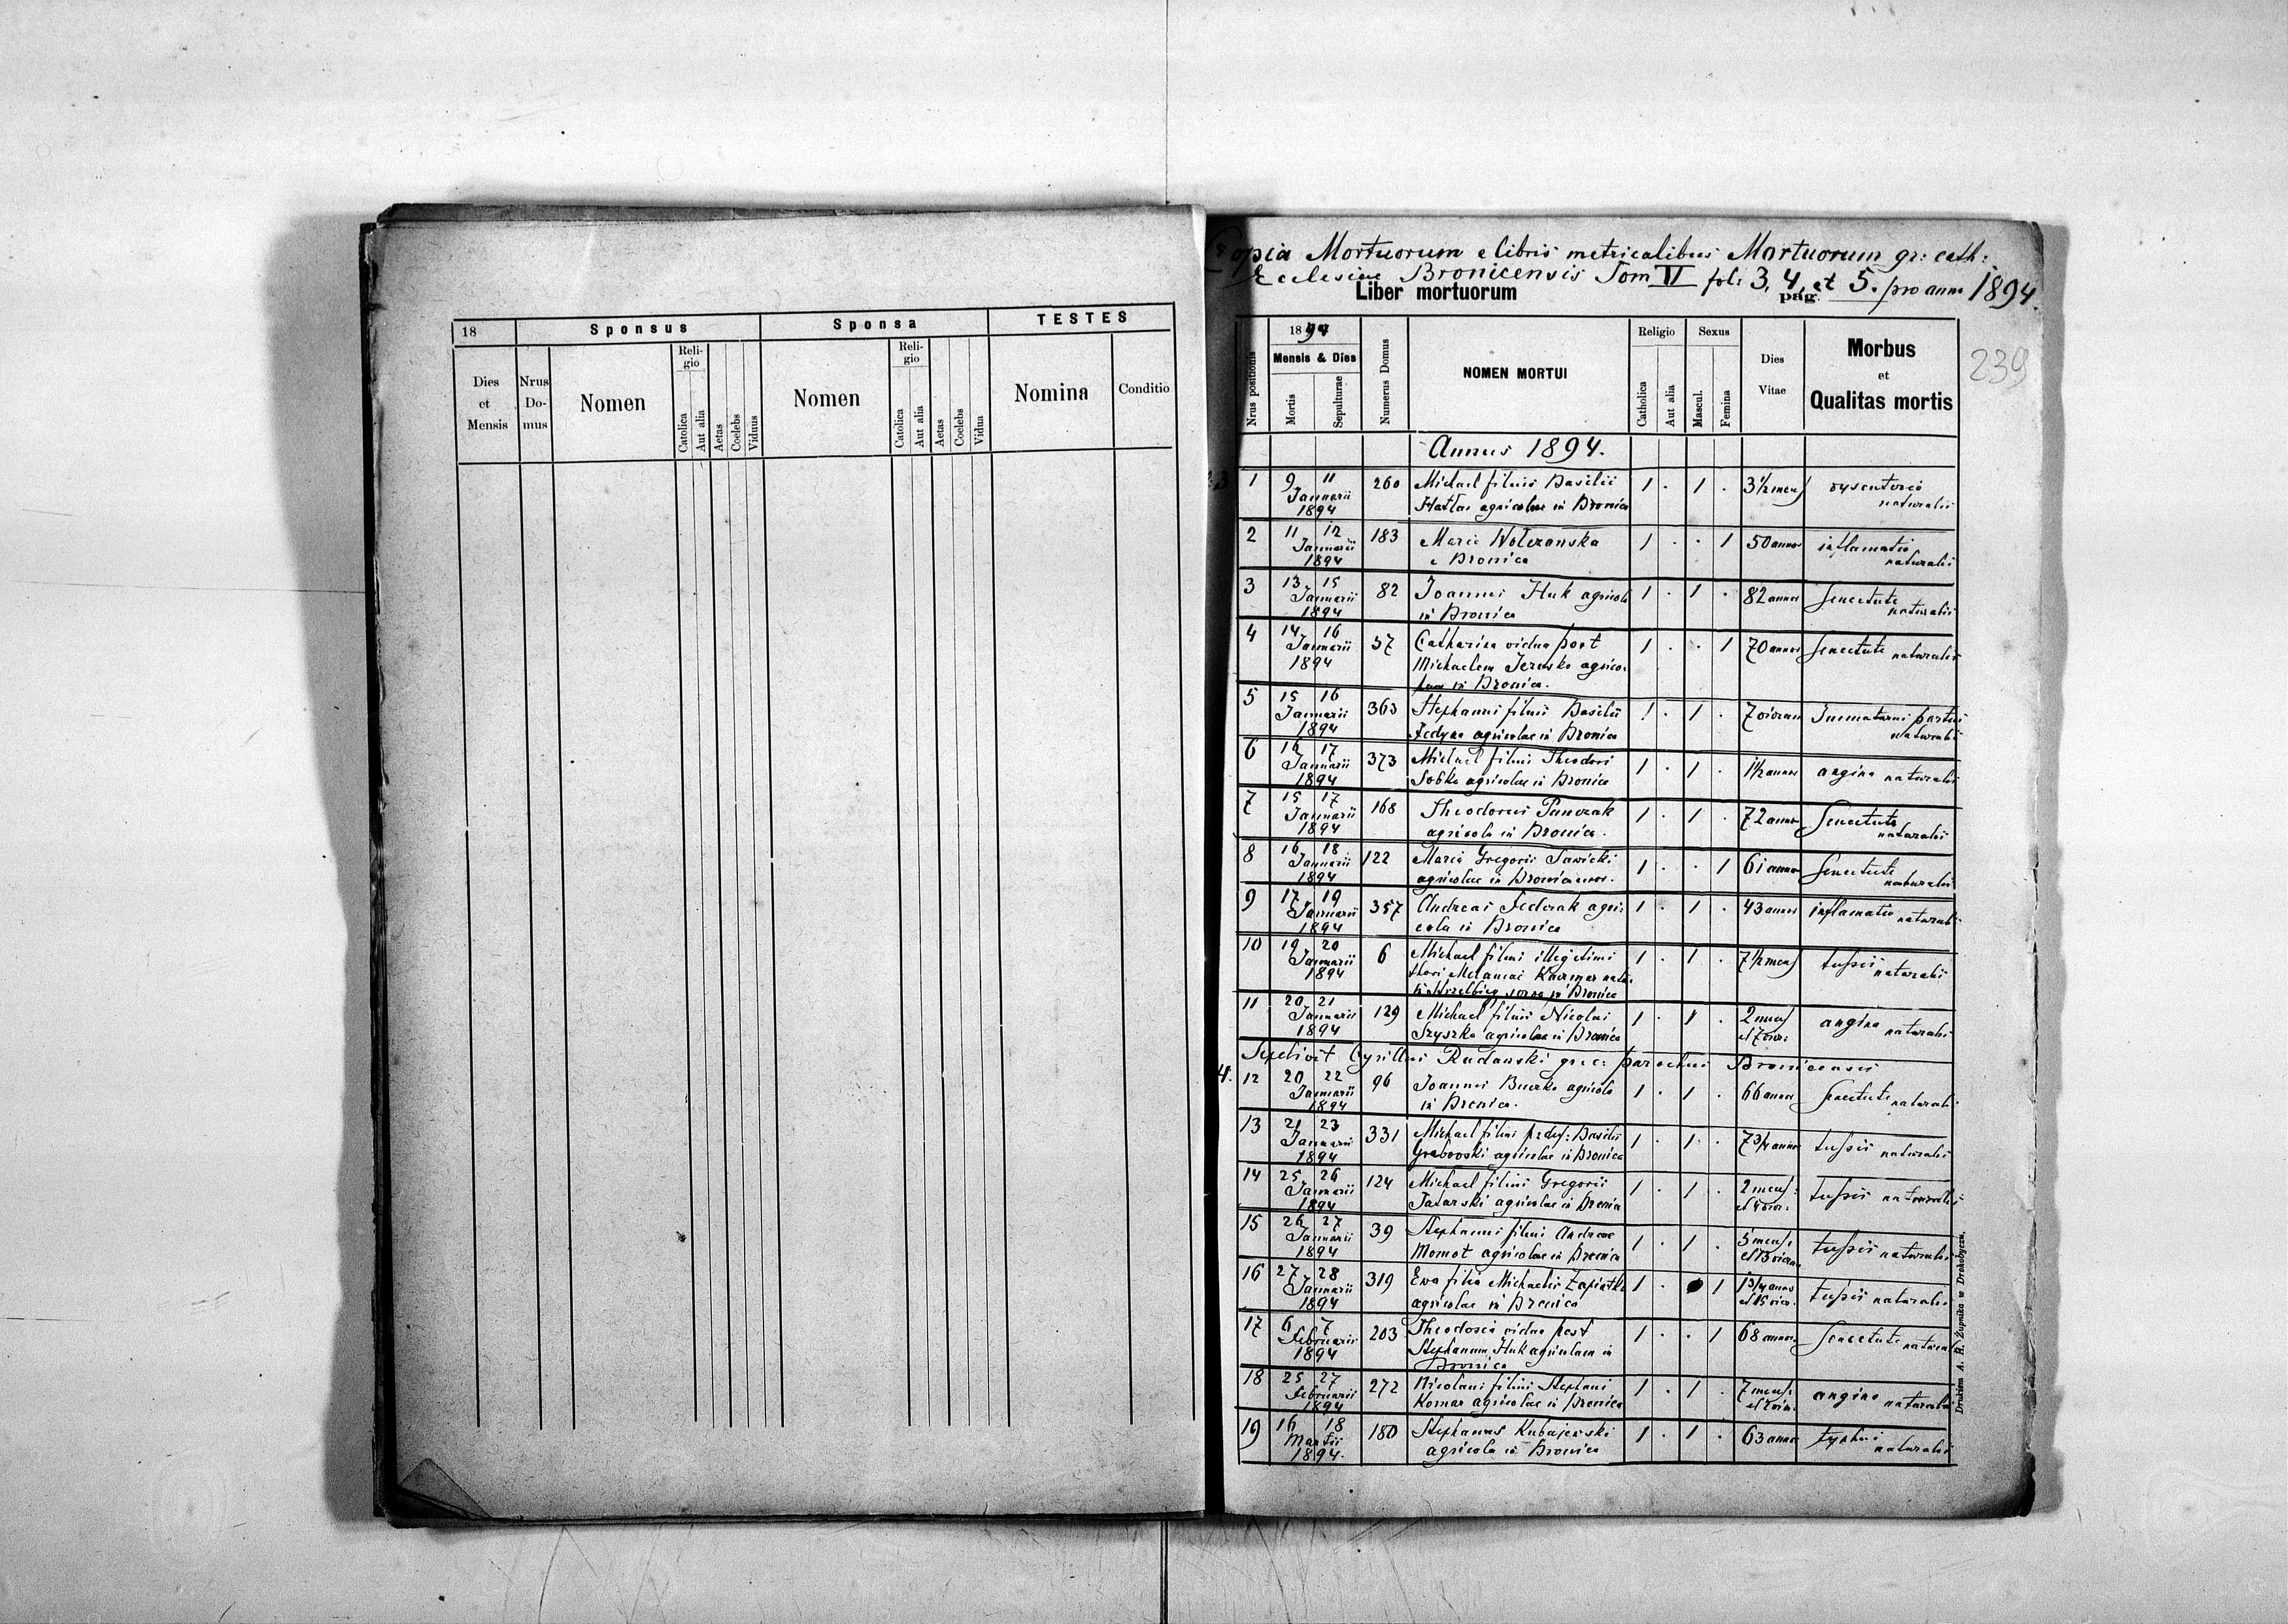 18
Sponsus
Sponsa
TESTES
Dies et Mensis
Nrus Do- mus
Nomen
Reli- gio
Catolica
Aut alia
Aetas
Coelebs
Viduus
Nomen
Reli- gio
Catolica
Aut alia
Aetas
Coelebs
Vidua
Nomina
Conditio
Copia Mortuorum e libris metricalibus Mortuorum gr: cath:
Ecclesiae Bronicensis Tom VI fol: 3, 4, et 5. pro anno 1894.
Liber mortuorum
pag.
239
Nrus positionis
1894
Mensis & Dies
Mortis
Sepulturae
Numerus Domus
NOMEN MORTUI
Religio
Catholica
Aut alia
Sexus
Mascul.
Femina
Dies Vitae
Morbus et Qualitas mortis
Annus 1894.
1 9 11 Januarii 1894 260 Michael filius Basilii 1 . 1 . 3 1/2 mens naturalis
agricolae in Bronica
2 11 12 Januarii 1894 183 Maria Wolczanska 1 . . 1 50 annos inflamatio naturalis
e Bronica
3 13 15 Januarii 1894 82 Joannes Huk agricola 1 . 1 . 82 annos Senectute naturalis
in Bronica
4 14 16 Januarii 1894 57 Catharina vidua post 1 . . 1 70 annos Senectute naturalis
Michaelem agrico-
lam in Bronica.
5 15 16 Januarii 1894 363 Stephanus filius Basilii 1 . 1 . 7 Immaturus partus naturalis
Fedyna agricolae in Bronica
6 16 17 Januarii 1894 373 Michael filius Theodori 1 . 1 . 1 1/2 annos angina naturalis
Sobko agricolae in Bronica
7 15 17 Januarii 1894 168 Theodorus Punczak 1 . 1 . 72 annos Senectute naturalis
agricola in Bronica.
8 16 18 Januarii 1894 122 Maria Gregorii Sawicki 1 . . 1 61 annos Senectute naturalis
agricolae in Bronica uxor.
9 17 19 Januarii 1894 357 Andreas Fedczak agri- 1 . 1 . 43 annos inflamatio naturalis
cola in Bronica
10 19 20 Januarii 1894 6 Michael filius illegitimi 1 . 1 . 7 1/2 mens tussis naturalis
thori Melaniae Kaczmar
in Bronica
11 20 21 Januarii 1894 129 Michael filius Nicolai 1 . 1 . 2 mens angina naturalis
Szyszka agricolae in Bronica
Sepelivit Cyrillus Rudawski gr: c: parochus Bronicensis
4.
12 20 22 Januarii 1894 96 Joannes Buczko agricola 1 . 1 . 66 annos Senectute naturalis
in Bronica.
13 21 23 Januarii 1894 331 Michael filius Basilii 1 . 1 . 7 3/4 annos tussis naturalis
Grabowski agricolae in Bronica
14 25 26 Januarii 1894 124 Michael filius Gregorii 1 . 1 . 2 mens: tussis naturalis
Tatarski agricolae in Bronica
15 26 27 Januarii 1894 39 Stephanus filius Andreae 1 . 1 . 5 mens: tussis naturalis
Momot agricolae in Bronica
16 27 28 Januarii 1894 319 Eva filia Michaelis 1 . 1 1 3/4 annos tussis naturalis
agricolae in Bronica
17 6 7 Februarii 1894 203 Theodosia vidua post 1 . . 1 68 annos. Senectute naturalis
Stephanum Huk agricolam in
Bronica
18 25 27 Februarii 1894 272 Nicolaus filius Stephani 1 . 1 . 7 mens: angina naturalis
Komar agricolae in Bronica
19 16 18 Martii 1894. 180 Stephanus Kubajewski 1 . 1 . 63 annos typhus naturalis
agricola in Bronica
Drukiem A. H. Żupnika w Drohobyczu.